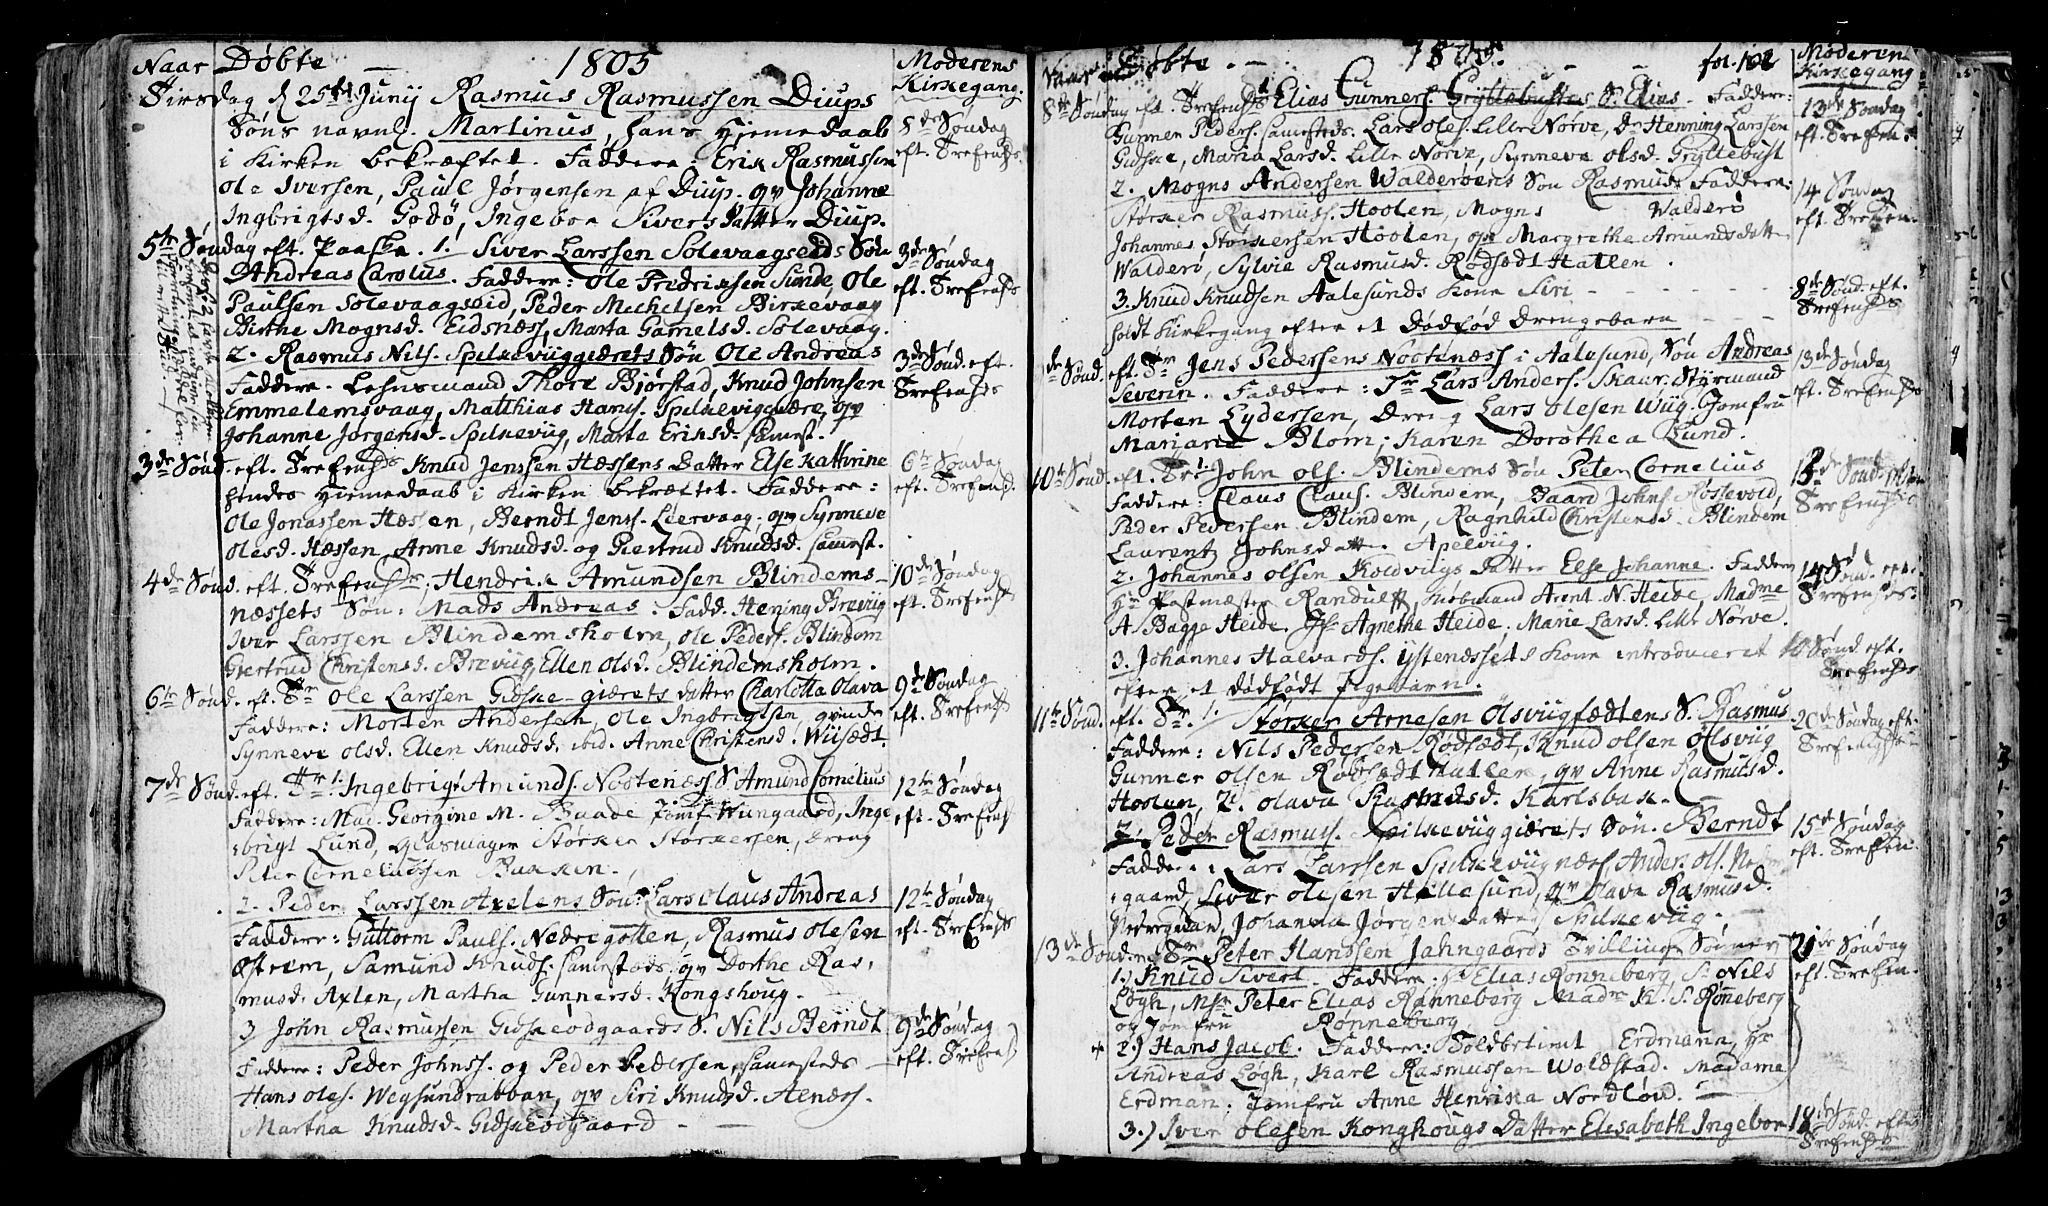 Naar Døbte — 1805 Moderens
Kirkegang.
Tirsdag d 25de Junij Rasmus Rasmussen Diups
Søns navnl. Martinus, hans Hjemedaab
i Kirken bekræftet. Faddere: Erik Rasmussen
Ole Iversen, Paul Jørgensen af Diup. qv Johanne
Ingbrigtsd. Godø, Ingebor Siverts Datter Diup.
8de Søndag
eft. Trefends.
5te Søndag eft. Paaske. 1. Siver Larssen Solevaagseids Søn
Andreas Carolus. Faddere: Ole Fredriksen Sunde, Ole
Paulsen Solevaagseid, Peder Michelsen Birkevaag
Birthe Mognsd. Eidsnæss, Marta Gamelsd. Solevaag.
3de Søndag
eft. Trefends
2. Rasmus Nils. Spilkeviiggiærets Søn Ole Andreas
Faddere. Lehnsmand Thore Bjørstad, Knud Johnsen
Emmelemsvaag, Matthias Hans. Spilkeviggiære, qv
Johanne Jørgensd. Spilkeviig, Marte Eriksd. samest.
3de Sønd. eft.
Trefends
3de Sønd. eft. Trefends Knud Jenssen Hæssens Datter Else Kathrine
hendes Hjemedaab i Kirken bekræftet. Faddere:
Ole Jonassen Hæssen, Berndt Jenss. Leervaag, qv Synneve
Olesd. Hæssen, Anne Knudsd. og Giertrud Knudsd. samest.
6te Søndag
eft. Trefends.
4de Sønd. eft. Trefends. Hendrik Amundsen Blindems-
næssets Søn: Mads Andreas. Fadd. Hening Breviig
Iver Larssen Blindemsholm, Ole Peders. Blindem
Giertrud Christensd. Breviig, Ellen Olsd. Blindemsholm.
10de Søndag
eft. Trefends
6te Sønd. eft. Tr. Ole Larssen Gidske-giærets datter Charlotta Olava
Faddere: Morten Andersen, Ole Ingbrigtsen, qvinde
Synneve Olsd. Ellen Knudsd. ibid. Anne Christensd. Wiisædt.
9de Søndag
eft. Trefends
7de Sønd. eft. Tr. 1. Ingebrigt Amunds. Nootenæss S. Amund Cornelius
Faddere: Mad. Georgine M. Baade Jomf. Wungaard, Inge
brigt Lund, Glasmager Størker Størkersen, dreng
Peter Corneliussen Bakken.
12te Søndag
eft. Trefends
2. Peder Larssen Axelens Søn: Lars Olaus Andreas
Faddere: Guttorm Pauls. Nedregotten, Rasmus Olesen
Østrem, Samund Knuds. samesteds. qv Dorthe Ras-
musd. Axlen, Martha Gunnersd. Kongshoug.
12te Søndag
eft. Trefends
3 John Rasmussen Gidskeødgaards S. Nils Berndt
Faddere: Peder Johnss. og Peder Pederssen, samesteds
Hans Oles. Wegsundrabban, qv Siri Knudsd. Alnæss.
Martha Knudsd. Gidskeødgaard —
9de Søndag
eft. Trefends
Naar Døbte. — 1805. — fol. 102 Moderens
Kirkegang
8de Søndag eft. Trefends 1. Elias Gunners. Gryttebustes S. Elias. Faddere:
Gunner Peders. samesteds. Lars Oles. Lille Nørve, Dr Henning Larssen
Gidske, Maria Larsd. Lille Nørve, Synneve Olsd. Gryttebust
13de Søndag
eft. Trefen.
2. Mogns Andersen Walderøens Søn Rasmus Faddere:
Størker Rasmuss. Hoolen, Mogns Walderø
Johannes Størkersen Hoolen, qv Margrethe Amundsdatter
Walderø, Sylvie Rasmusd. Rødsædt Hatlen.
14 Søndag
eft. Trefen.
3. Knud Knudsen Aalesunds Kone Siri - - - -
holdt Kirkegang efter et dødfød drengebarn — -
8de Sønd. eft.
Trefends
eft. Tr Jens Pedersens Nootenæss i Aalesund, Søn Andreas
Severin. Faddere: Sr Lars Anders. Skaur. Styrmand
Morten Lydersen, Dreng Lars Olesen Wiig. Jomfru
Mariane Blom, Karen Dorothea Lund.
13de Søndag
eft. Trefends
10de Sønd. eft. Tr. 1. John Ols. Blindems Søn Peter Cornelius
Faddere: Claus Claus. Blindem, Baard Johns. Røssevold,
Peder Pedersen Blindem, Ragnhild Christensd. Blindem
Laurentz Johnsdatter Apelviig.
2. Johannes Olsen Koldviigs Datter Else Johanne. Faddere
Hr Postmæster Randulff, Kiøbmand Arent N. Heide, Madme
A. Bagge Heide. Jfr Agnethe Heide. Marie Larsd. Lille Nørve.
14 Sønd. eft.
Trefends.
3. Johannes Halvards. Ystenæssets Kone introduceret
efter et dødfødt Pigebarn.
10 Sønd. eft.
Trefends
11te Sønd. eft. Tr. 1. Størker Arnesen Olsviigfædtens S. Rasmus
Faddere: Nils Pedersen Rødsædt, Knud Olsen Olsviig
Gunner Olsen Rødsædt Hatlen, qv Anne Rasmusd.
Hoolen, Olava Rasmusd. Karlsbak. —
20de Søndag eft.
2. Peder Rasmuss. Spilkeviiggiærets Søn. Berndt
Faddere: Lars Larssen Spilkeviignæss Anders Ols. Neder
gaard, Siver Olesen Hellesund, qv Olava Rasmusd.
Nedregaard, Johanna Jørgensdatter Spilkeviig. —
15de Søndag
eft. Trefen.
13de Sønd. e. Tr Peter Hanssen Jahngaards Tvillinge Sønner
1.) Knud Sivert. Faddere: Hr Elias Rønneberg, Sr Nils
Løgh, Msr Peter Elias Rønneberg Madm K. S. Rønneberg
og Jomfru Rønneberg
2.) Hans Jacob. Faddere: Toldbetient Erdmann, Hr
Andreas Løgh, Karl Rasmussen Woldstad. Madame
Erdman. Jomfru Anne Henrika Nordløw. —
21de Søndag
eft. Trefen.
3.) Iver Olesen Konghougs Datter Elisabeth Ingebor
18de Sønd. eft.
Trefends